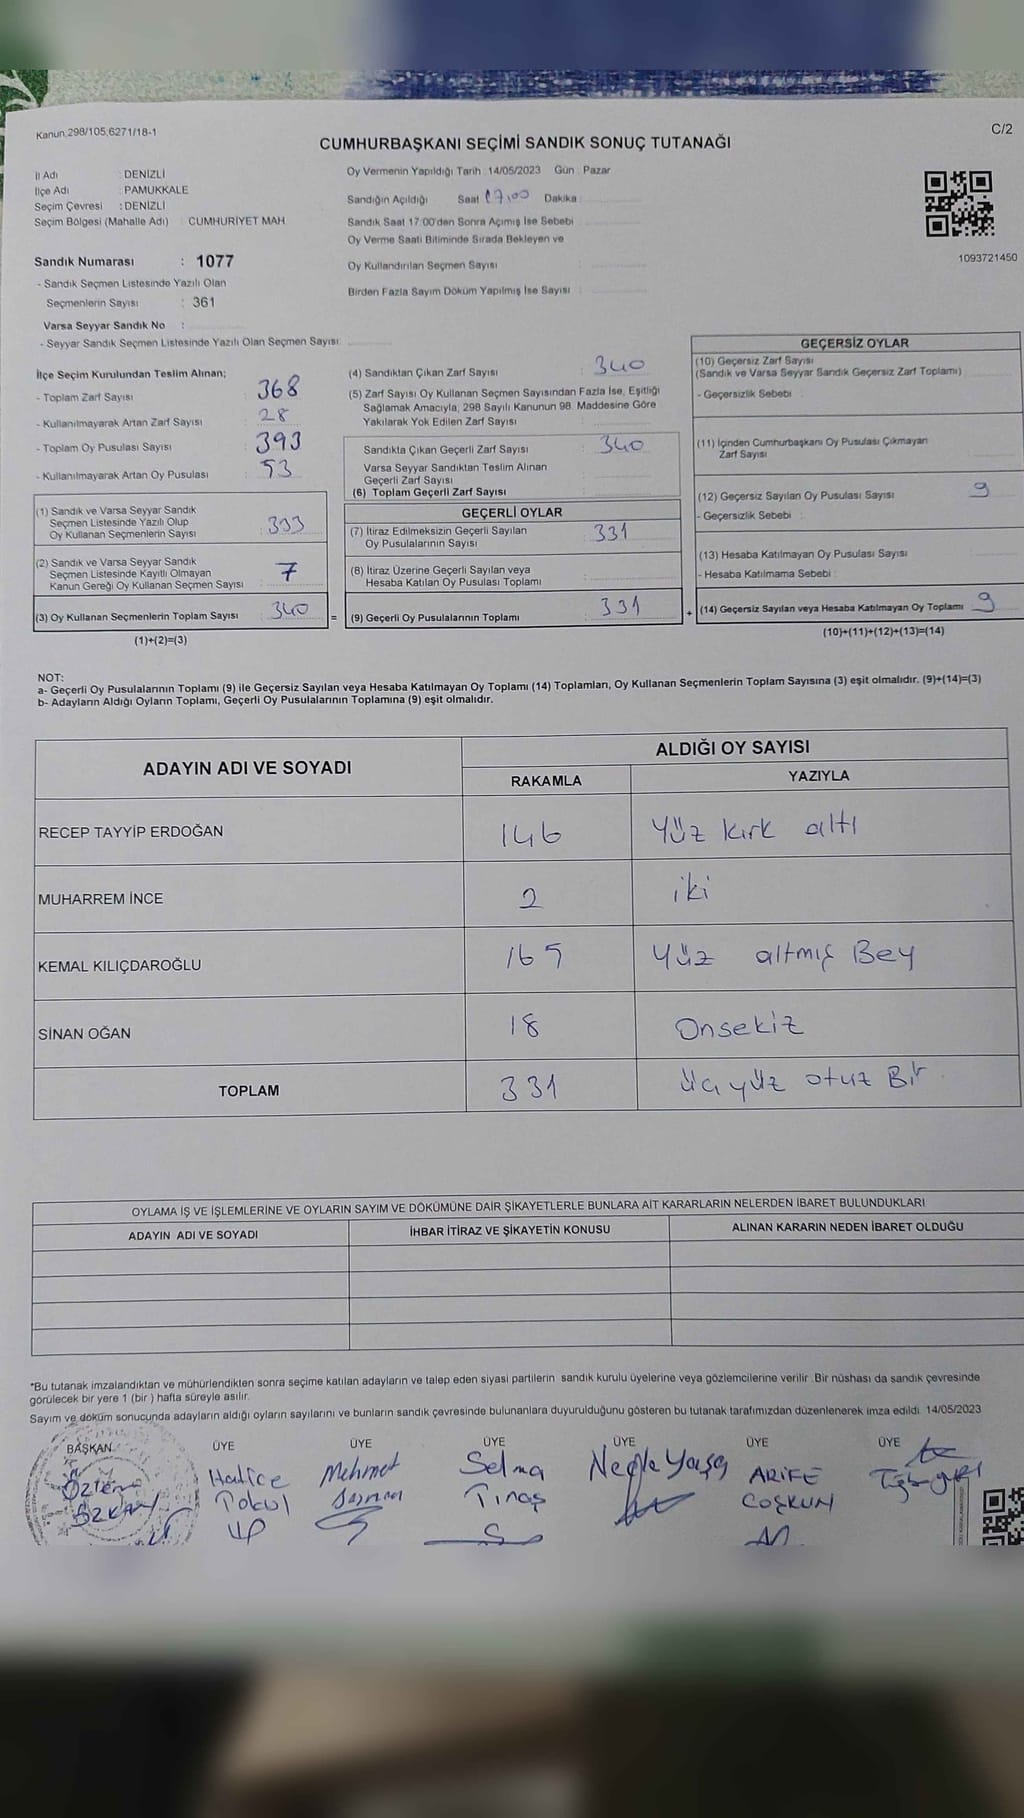 Kanun 298/105,6271/18-1
C/2
CUMHURBAŞKANI SEÇİMİ SANDIK SONUÇ TUTANAĞI
İl Adı : DENİZLİ
İlçe Adı : PAMUKKALE
Seçim Çevresi : DENİZLİ
Seçim Bölgesi (Mahalle Adı) : CUMHURİYET MAH
Sandık Numarası : 1077
- Sandık Seçmen Listesinde Yazılı Olan
Seçmenlerin Sayısı : 361
Varsa Seyyar Sandık No :
- Seyyar Sandık Seçmen Listesinde Yazılı Olan Seçmen Sayısı:
Oy Vermenin Yapıldığı Tarih : 14/05/2023 Gün : Pazar
Sandığın Açıldığı Saat 17,00 Dakika :
Sandık Saat 17:00'den Sonra Açımış İse Sebebi :
Oy Verme Saati Bitiminde Sırada Bekleyen ve
Oy Kullandırılan Seçmen Sayısı :
Birden Fazla Sayım Döküm Yapılmış İse Sayısı :
1093721450
İlçe Seçim Kurulundan Teslim Alınan;
- Toplam Zarf Sayısı : 368
- Kullanılmayarak Artan Zarf Sayısı : 28
- Toplam Oy Pusulası Sayısı : 393
- Kullanılmayarak Artan Oy Pusulası : 53
(1) Sandık ve Varsa Seyyar Sandık
Seçmen Listesinde Yazılı Olup
Oy Kullanan Seçmenlerin Sayısı : 333
(2) Sandık ve Varsa Seyyar Sandık
Seçmen Listesinde Kayıtlı Olmayan
Kanun Gereği Oy Kullanan Seçmen Sayısı : 7
(3) Oy Kullanan Seçmenlerin Toplam Sayısı : 340
(1)+(2)=(3)
(4) Sandıktan Çıkan Zarf Sayısı : 340
(5) Zarf Sayısı Oy Kullanan Seçmen Sayısından Fazla İse, Eşitliği
Sağlamak Amacıyla, 298 Sayılı Kanunun 98. Maddesine Göre
Yakılarak Yok Edilen Zarf Sayısı :
Sandıkta Çıkan Geçerli Zarf Sayısı : 340
Varsa Seyyar Sandıktan Teslim Alınan
Geçerli Zarf Sayısı :
(6) Toplam Geçerli Zarf Sayısı :
GEÇERLİ OYLAR
(7) İtiraz Edilmeksizin Geçerli Sayılan
Oy Pusulalarının Sayısı : 331
(8) İtiraz Üzerine Geçerli Sayılan veya
Hesaba Katılan Oy Pusulası Toplamı :
= (9) Geçerli Oy Pusulalarının Toplamı : 331
GEÇERSİZ OYLAR
(10) Geçersiz Zarf Sayısı
(Sandık ve Varsa Seyyar Sandık Geçersiz Zarf Toplamı)
- Geçersizlik Sebebi :
(11) İçinden Cumhurbaşkanı Oy Pusulası Çıkmayan
Zarf Sayısı
(12) Geçersiz Sayılan Oy Pusulası Sayısı 9
- Geçersizlik Sebebi :
(13) Hesaba Katılmayan Oy Pusulası Sayısı
- Hesaba Katılmama Sebebi :
+ (14) Geçersiz Sayılan veya Hesaba Katılmayan Oy Toplamı 9
(10)+(11)+(12)+(13)=(14)
NOT:
a- Geçerli Oy Pusulalarının Toplamı (9) ile Geçersiz Sayılan veya Hesaba Katılmayan Oy Toplamı (14) Toplamları, Oy Kullanan Seçmenlerin Toplam Sayısına (3) eşit olmalıdır. (9)+(14)=(3)
b- Adayların Aldığı Oyların Toplamı, Geçerli Oy Pusulalarının Toplamına (9) eşit olmalıdır.
ADAYIN ADI VE SOYADI
ALDIĞI OY SAYISI
RAKAMLA YAZIYLA
RECEP TAYYİP ERDOĞAN 146 Yüz kırk altı
MUHARREM İNCE 2 iki
KEMAL KILIÇDAROĞLU 165 Yüz altmış Beş
SİNAN OĞAN 18 Onsekiz
TOPLAM 331 üç yüz otuz Bir
OYLAMA İŞ VE İŞLEMLERİNE VE OYLARIN SAYIM VE DÖKÜMÜNE DAİR ŞİKAYETLERLE BUNLARA AİT KARARLARIN NELERDEN İBARET BULUNDUKLARI
ADAYIN ADI VE SOYADI İHBAR İTİRAZ VE ŞİKAYETİN KONUSU ALINAN KARARIN NEDEN İBARET OLDUĞU
*Bu tutanak imzalandıktan ve mühürlendikten sonra seçime katılan adayların ve talep eden siyasi partilerin sandık kurulu üyelerine veya gözlemcilerine verilir. Bir nüshası da sandık çevresinde
görülecek bir yere 1 (bir) hafta süreyle asılır.
Sayım ve döküm sonucunda adayların aldığı oyların sayılarını ve bunların sandık çevresinde bulunanlara duyurulduğunu gösteren bu tutanak tarafımızdan düzenlenerek imza edildi. 14/05/2023
BAŞKAN ÜYE ÜYE ÜYE ÜYE ÜYE ÜYE
Özlem Hatice Mehmet Selma Necla Yaşa ARİFE
ÖZKAN Tokul Tınaş COŞKUN